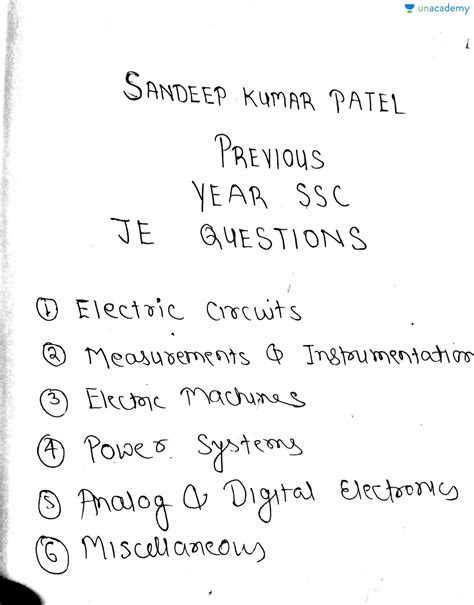 unacademy
1
SANDEEP KUMAR PATEL
PREVIOUS
YEAR SSC
JE QUESTIONS
① Electric Circuits
② Measurements & Instrumentation
③ Electric Machines
④ Power Systems
⑤ Analog & Digital Electronics
⑥ Miscellaneous